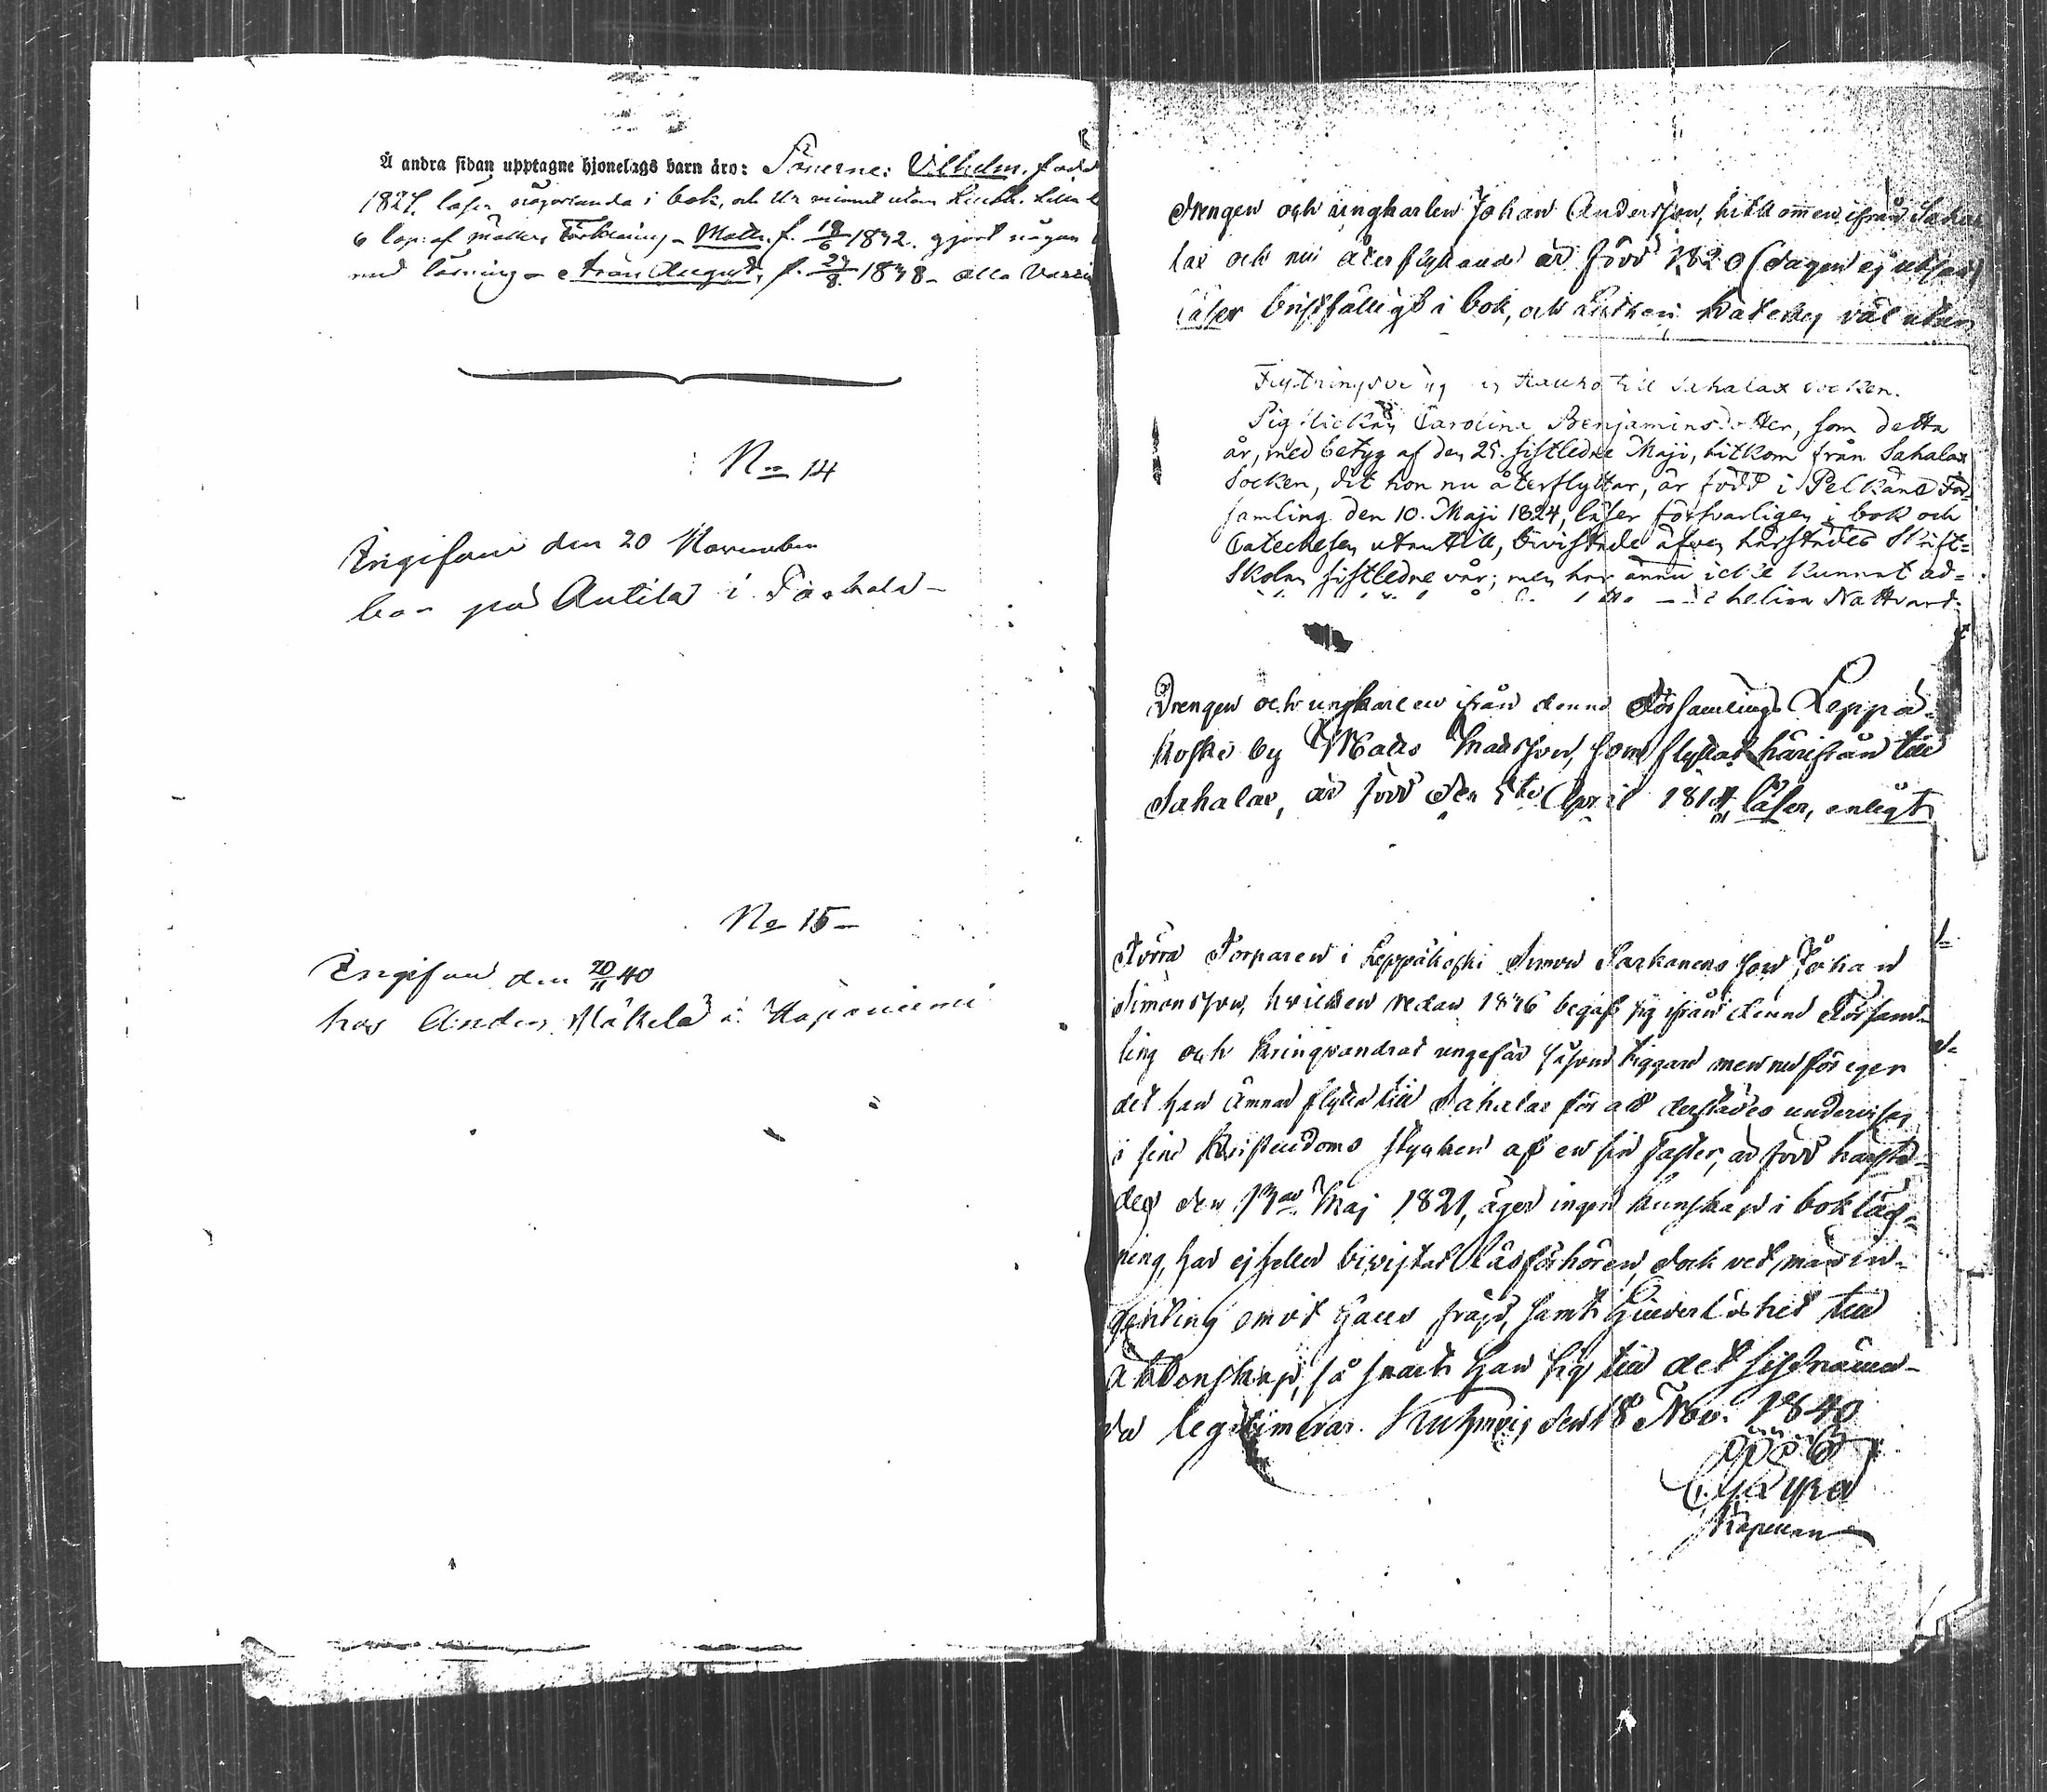 Å andra sidan upptagne hjonelags barn äro: Sönerne: Vilhelm, född
1827, läser någorlunda i bok, och ur minnet utom Luth. Lilla
6 kap. af Förklaring - Matts. f. 18/6 1832. gjort någon
med läsning - August, f. 27/8. 1838 - alla
No 14
Ingifven den 20 November
bor på Antila i
No 15 -
Ingifven den 20/11 40
hos Anders Mäkelä i Haponiemi
Drengen och ungkarlen Johan Andersson, hitkommen ifrån Saha
lax och nu återflyttande är född 1820 (dagen ej utsatt)
läser bristfälligt i bok, och Lutheri Kateches väl utan
Flyttningsbetyg till Sahalax socken.
Pigflickan Carolina Benjaminsdotter, som detta
år, med betyg af den 25. sistledne Maji, hitkom från Sahalax
Socken, dit hon nu återflyttar, är född i Pelkäne För=
samling den 10. Maji 1824, läser försvarligen i bok och
Catechesen utantill, bivistade äfven härstädes Skrift=
Skolan sistledne vår; men har ännu icke kunnat ad=
heliga Nattvard.
Drengen och ungkarlen ifrån denne Församlings Leppä=
koski by Matts Matsson, som flyttar härifrån till
Sahalax, är född den 5te April 1814, läser, enligt
Förra Torparen i Leppäkoski Simon Sarkanens son Johan
Simonsson, hvilken redan 1836 begaf sig ifrån denne Försam=
ling och kringvandrat ungefär såsom tiggare men nu föreger
det han ämnar flytta till Sahalax för att derstädes undervisas
i sine Kristendoms stycken af en sin faster, är född härstä=
des den 13de Maj 1821, äger ingen kunskap i bokläs=
ning, har ej heller bivistat Läsförhören, dock vet man in=
genting emot hans frejd, samt hinderlöshet till
äktenskap, så snart han sig till det sistnämn=
da legitimerar. Kuhmois den 18 Nov. 1840
Kapellan